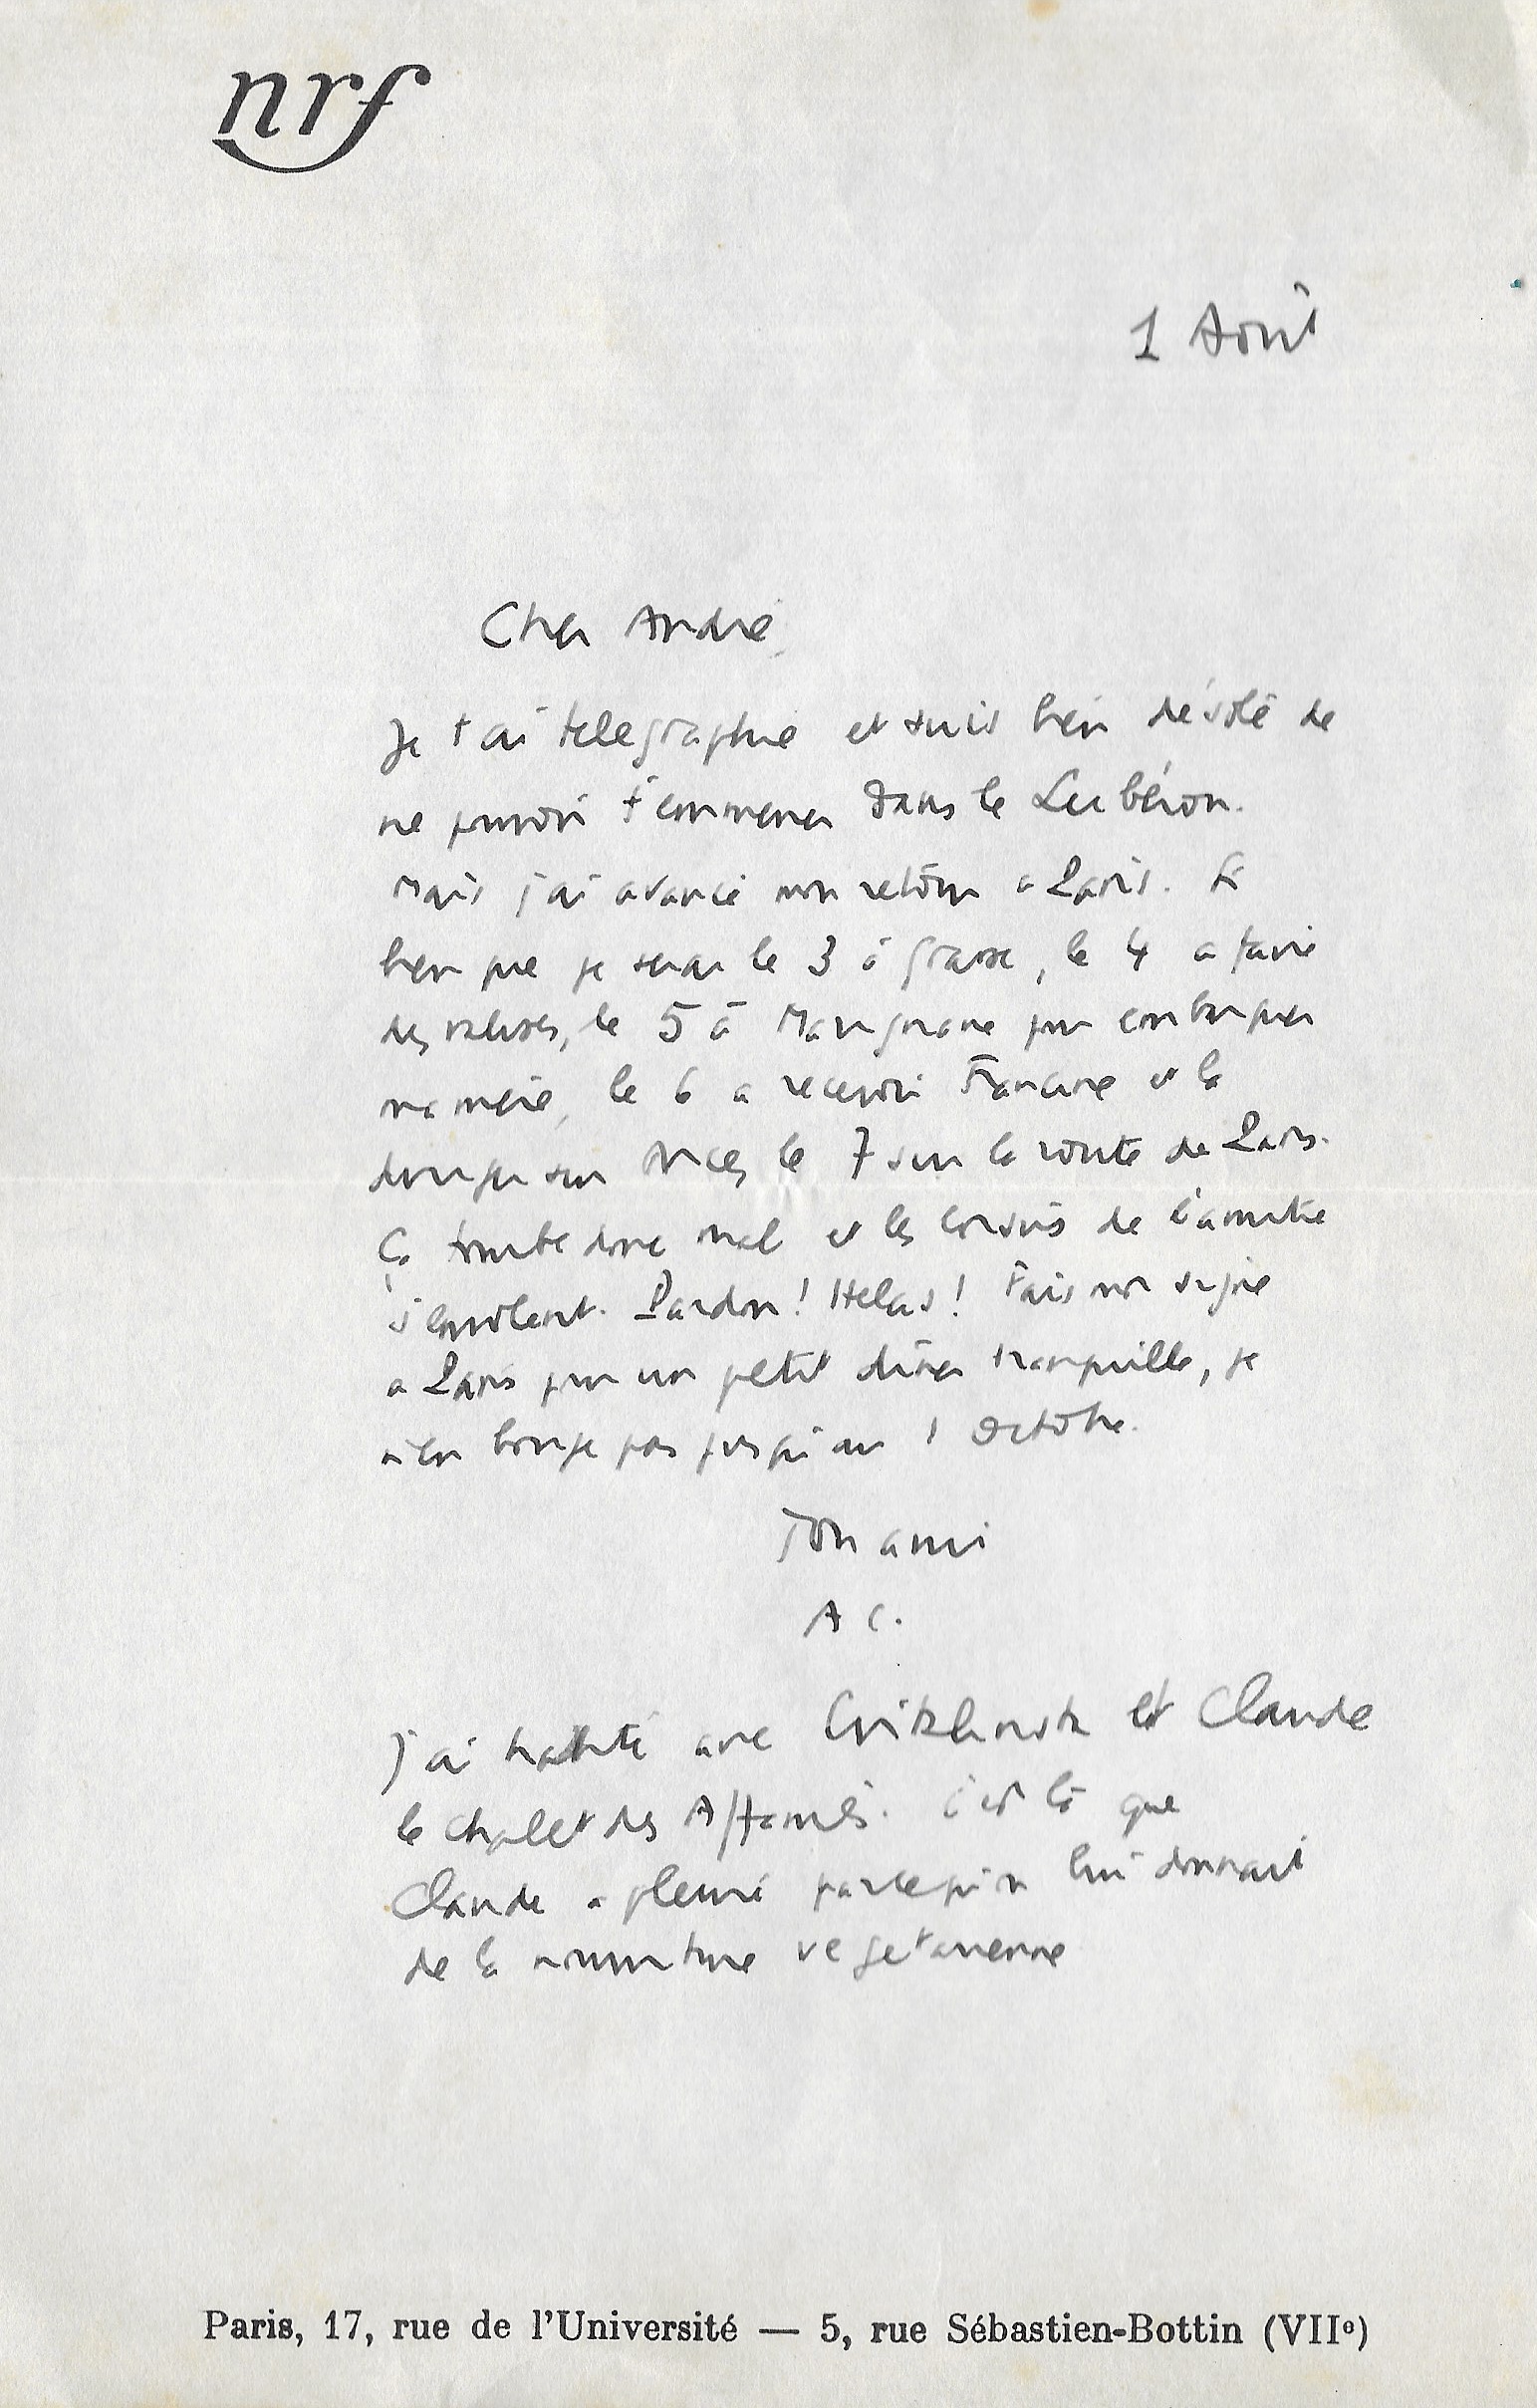 nrf
1 Août
Cher André,
Je t'ai télégraphié et suis bien désolé de
ne pouvoir t'emmener dans le Lubéron.
Mais j'ai avancé mon retour à Paris. Si
bien que je serai le 3 à Grasse, le 4 à faire
des valises, le 5 à Marignane pour embarquer
ma mère, le 6 à recevoir Francine et la
diriger sur Nice, le 7 sur la route de Paris.
Ça tombe donc mal et les loisirs de l'amitié
s'envolent. Pardon ! Hélas ! Fais moi signe
à Paris pour un petit dîner tranquille, je
n'en bouge pas jusqu'au 1 Octobre.
Ton ami
A C.
J'ai habité avec et Claude
le chalet des Affamés. C'est là que
Claude a pleuré parce qu'on lui donnait
de la nourriture végétarienne
Paris, 17, rue de l'Université — 5, rue Sébastien-Bottin (VIIe)